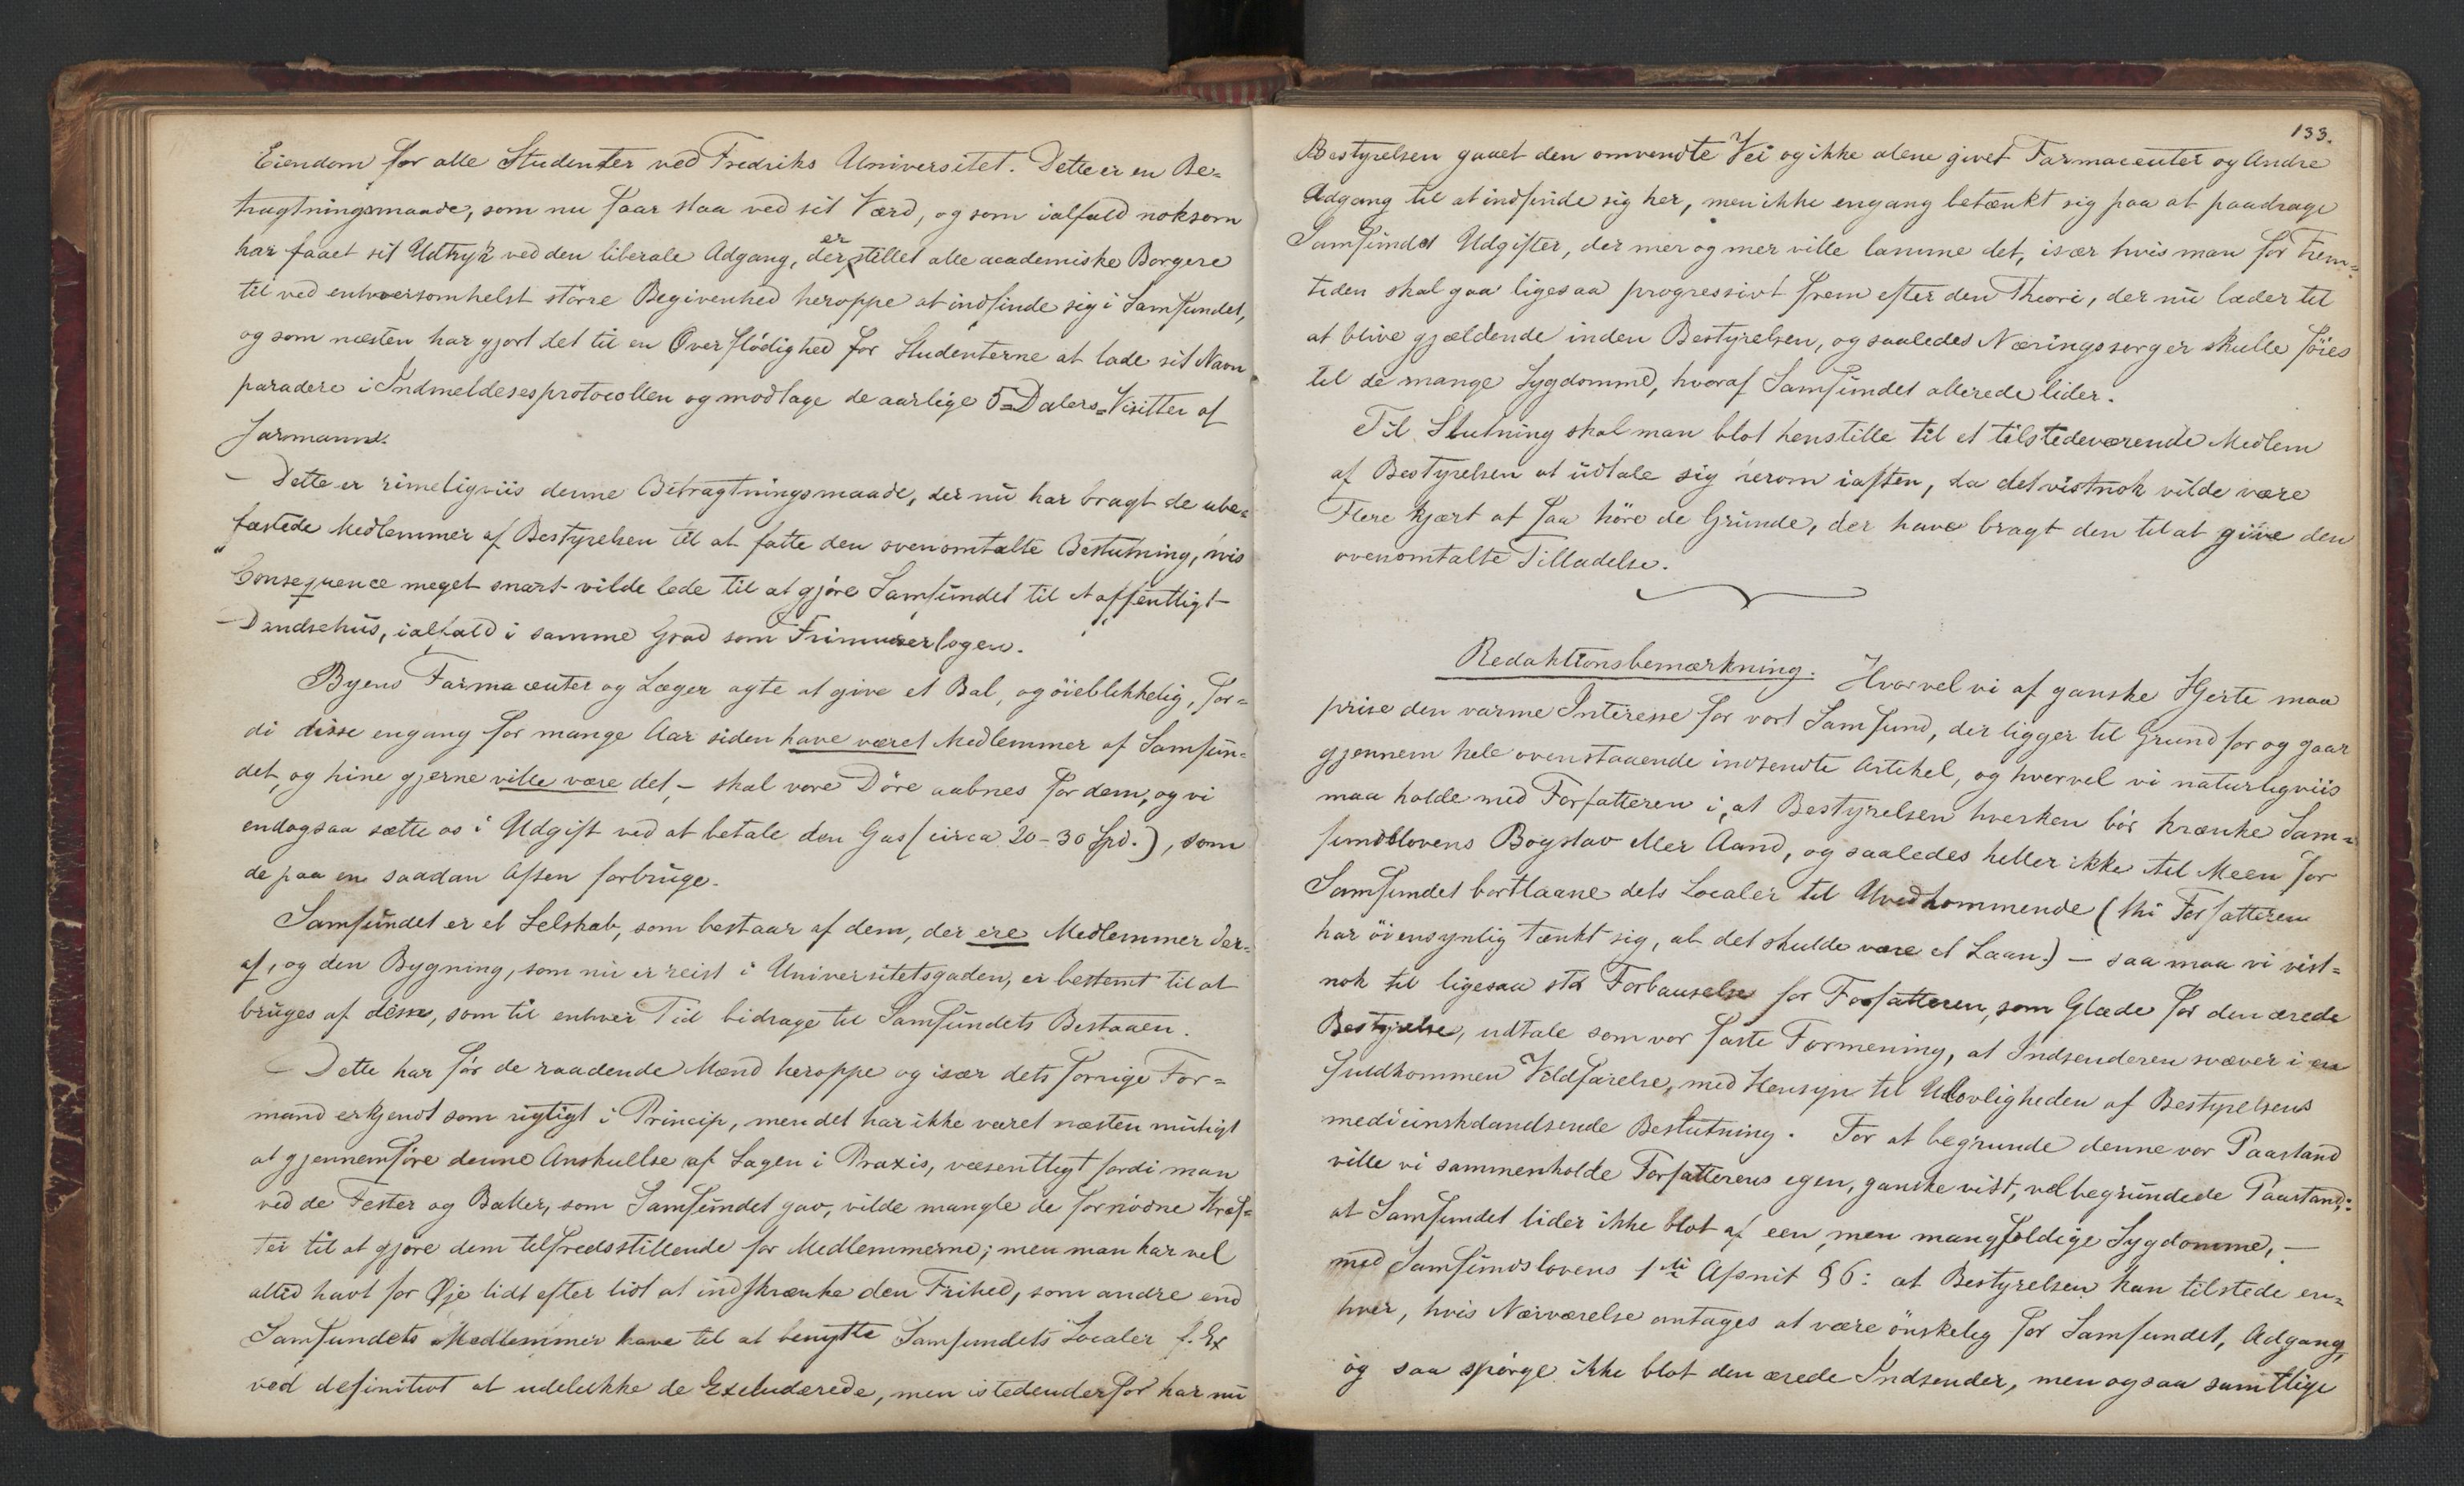 Eiendom for alle Studenter ved Fredriks Universitet. Dette er en Be=
tragtningsmaade, som nu faar staa ved sit Værd, og som ialfald noksom
har faaet sit Udtryk ved den liberale Adgang, der er stillet alle academiske Borgere
til ved enhversomhelst större Begivenhed heroppe at indfinde sig i Samfundet,
og som næsten har gjort det til en Overflödighed for Studenterne at lade sit Navn
paradere i Indmeldesesprotocollen og modtage de aarlige 5=Dalers=Visitter af
Farmann.
— Dette er rimeligviis denne Betragtningsmaade, der nu har bragt de ube=
fæstede Medlemmer af Bestyrelsen til at fatte den ovenomtalte Beslutning, hvis
Consequence meget snart vilde lede til at gjöre Samfundet til et offentligt
Dandsehus, ialfald i samme Grad som Frimurerlogen.
Byens Farmaceuter og Læger agte at give et Bal, og öieblikkelig, for=
di disse engang for mange Aar siden have været Medlemmer af Samfun=
det, og hine gjerne ville være det, — skal vore Döre aabnes for dem, og vi
endogsaa sætte os i Udgift ved at betale den Gas (circa 20-30 Spd.), som
de paa en saadan Aften forbruge.
Samfundet er et Selskab, som bestaar af dem, der ere Medlemmer der=
af, og den Bygning, som nu er reist i Universitetsgaden, er bestemt til at
bruges af disse, som til enhver Tid bidrage til Samfundets Bestaaen.
— Dette har för de raadende Mænd heroppe og især dets forrige For=
mand erkjendt som rigtigt i Princip, men det har ikke været næsten muligt
at gjennemföre denne Anskuelse af Sagen i Praxis, væsentligt fordi man
ved de Fester og Baller, som Samfundet gav, vilde mangle de fornödne Kræf=
ter til at gjöre dem tilfredsstillende for Medlemmerne; men man har vel
altid havt for Øje lidt efter lidt at indskrænke den Frihed, som andre end
Samfundets Medlemmer have til at benytte Samfundets Localer f. Ex
ved definitivt at udelukke de Excluderede, men istedenderfor har nu
133.
Bestyrelsen gaaet den omvendte Vei og ikke alene givet Farmaceuter og Andre
Adgang til at indfinde sig her, men ikke engang betænkt sig paa at paadrage
Samfundet Udgifter, der mer og mer ville lamme det, især hvis man for Frem=
tiden skal gaa ligesaa progressivt frem efter den Theori, der nu lader til
at blive gjældende inden Bestyrelsen, og saaledes Næringssorger skulle föies
til de mange Sygdomme, hvoraf Samfundet allerede lider.
Til Slutning skal man blot henstille til et tilstedeværende Medlem
af Bestyrelsen at udtale sig herom iaften, da det vistnok vilde være
Flere kjært at faa höre de Grunde, der have bragt den til at give den
ovenomtalte Tilladelse.
Redaktionsbemærkning. Hvorvel vi af ganske Hjerte maa
prise den varme Interesse for vort Samfund, der ligger til Grund for og gaar
gjennem hele ovenstaaende indsendte Artikel, og hvorvel vi naturligviis
maa holde med Forfatteren i, at Bestyrelsen hverken bör krænke Sam=
fundslovens Bogstav eller Aand, og saaledes heller ikke til Meen for
Samfundet bortlaane dets Localer til Uvedkommende (thi Forfatteren
har öiensynlig tænkt sig, at det skulde være et Laan.) — saa maa vi vist=
nok til ligesaa stor Forbauselse for Forfatteren, som Glæde for den ærede
Bestyrelse, udtale som vor faste Formening, at Indsenderen svæver i en
fuldkommen Vildfarelse, med Hensyn til Ulovligheden af Bestyrelsens
medicinskdandsende Beslutning. For at begrunde denne vor Paastand
ville vi sammenholde Forfatterens egen, ganske vist, velbegrundede Paastand;:
at Samfundet lider ikke blot af een, men mangfoldige Sygdomme, —
med Samfundslovens 1ste Afsnit § 6: at Bestyrelsen kan tilstede en=
hver, hvis Nærværelse antages at være önskelig for Samfundet, Adgang,
og saa spörge ikke blot den ærede Indsender, men ogsaa samtlige